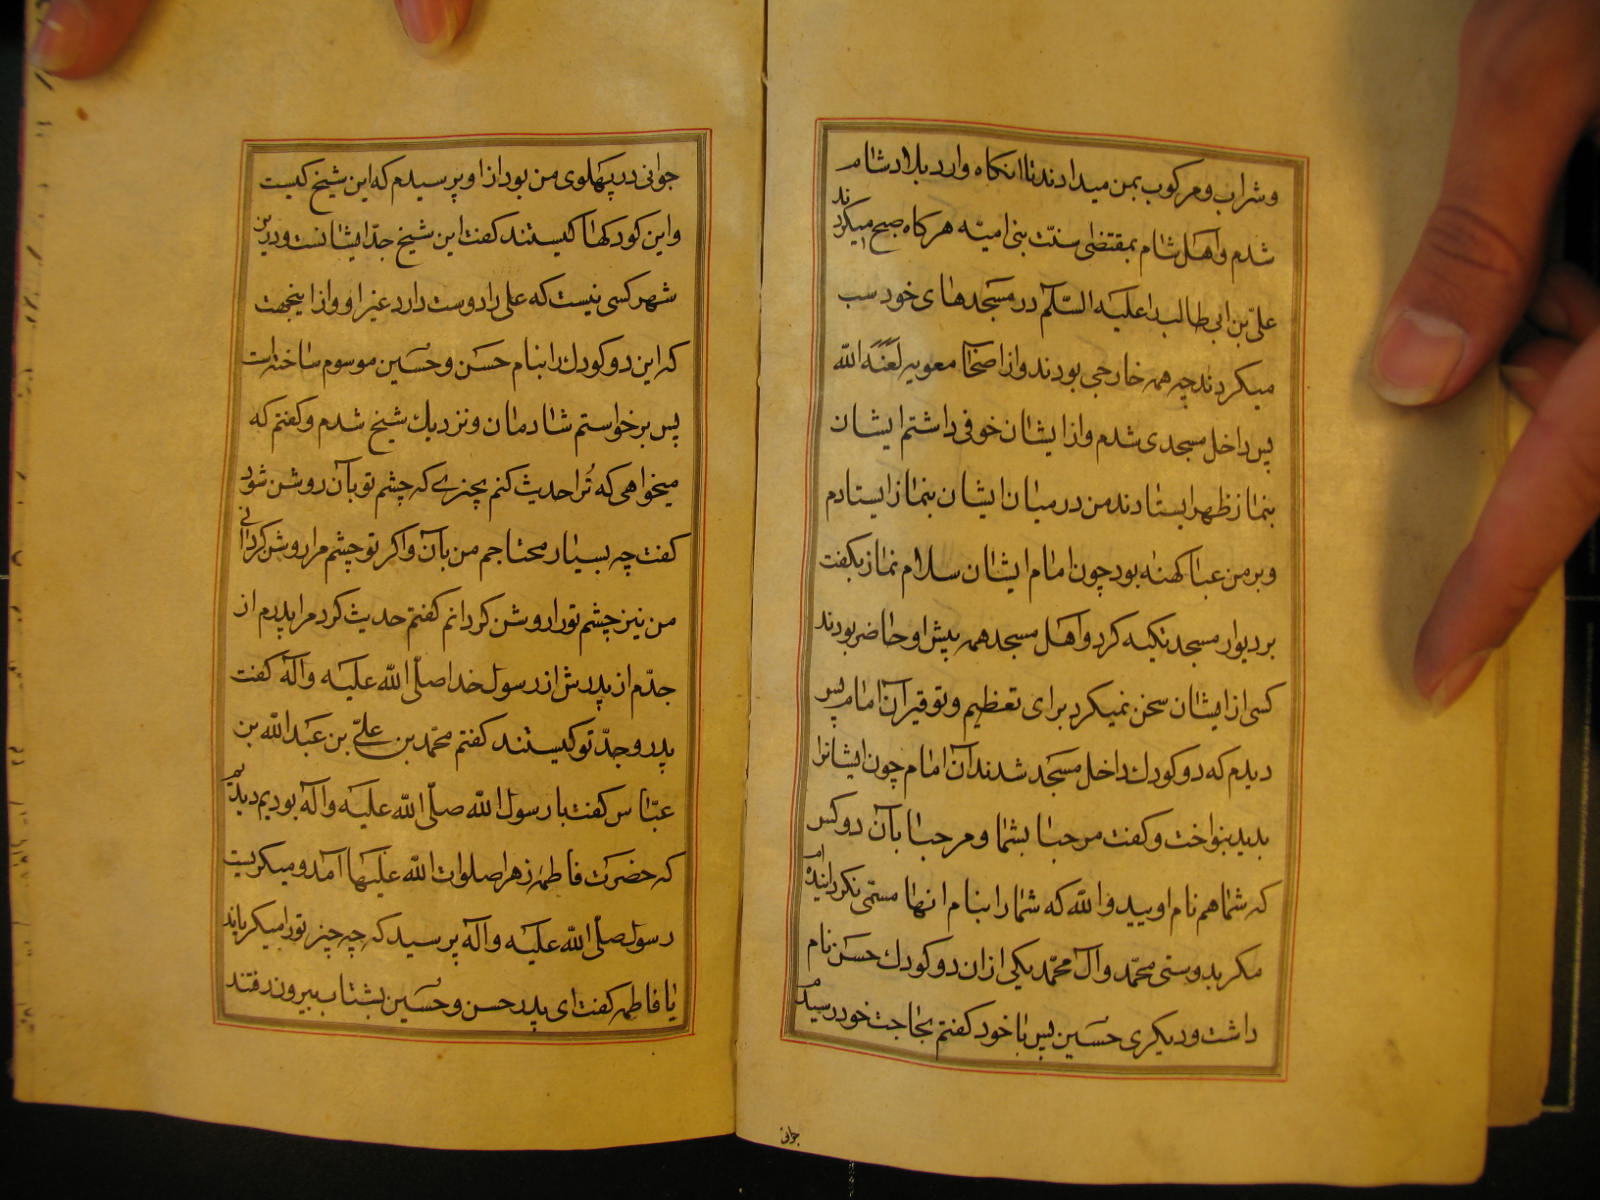 وشراب ومرکوب بمن میدادند تا انکاه وارد بلاد شام
شدم واهل شام بمقتضی سنّت بنی امیّه هرکاه صبح میکردند
علیّ بن ابی طالب را علیه السّلم در مسجدهای خود سب
میکردند چه همه خارجی بودند واز اصحاب معویه لعنه الله
پس داخل مسجدی شدم واز ایشان خوفی داشتم ایشان
بنماز ظهر ایستادند من در میان ایشان بنماز ایستادم
وبر من عبا کهنه بود چون امام ایشان سلام نماز بکفت
بر دیوار مسجد تکیه کرد واهل مسجد همه پیش او حاضر بودند
کسی از ایشان سخن نمیکرد برای تعظیم وتوقیر آن امام پس
دیدم که دو کودک داخل مسجد شدند آن امام چون ایشانرا
بدید بنواخت وکفت مرحبا بشما ومرحبا بآن دو کس
که شما هم نام اویید والله که شما را بنام انها مسمّی نکردانیده ام
مکر بدوستی محمّد وآل محمّد یکی از ان دو کودک حسن نام
داشت ودیکری حسین پس با خود کفتم بحاجت خود رسیدم
جوانی
جوانی در پهلوی من بود از او پرسیدم که این شیخ کیست
واین کودکها کیستند کفت این شیخ جدّ ایشانست ودرین
شهر کسی نیست که علی را دوست دارد غیر او واز اینجهت
که این دو کودک را بنام حسن وحسین موسوم ساخته است
پس برخواستم شادمان ونزدیک شیخ شدم وکفتم که
میخواهی که تُرا حدیث کنم بچیزی که چشم تو بآن روشن شود
کفت چه بسیار محتاجم من بآن واکر تو چشم مرا روشن کردانی
من نیز چشم تو را روشن کردانم کفتم حدیث کرد مرا پدرم از
جدّم از پدرش از رسول خدا صلّی الله علیه وآله کفت
پدر وجدّ تو کیستند کفتم محمّد بن علیّ بن عبد الله بن
عبّاس کفت با رسول الله صلّی الله علیه وآله بودیم دیدیم
که حضرت فاطمهٔ زهرا صلوات الله علیها آمد ومیکریست
رسول صلّی الله علیه وآله پرسید که چه چیز تو را میکریاند
یا فاطمه کفت ای پدر حسن وحسین بشتاب بیرون رفتند